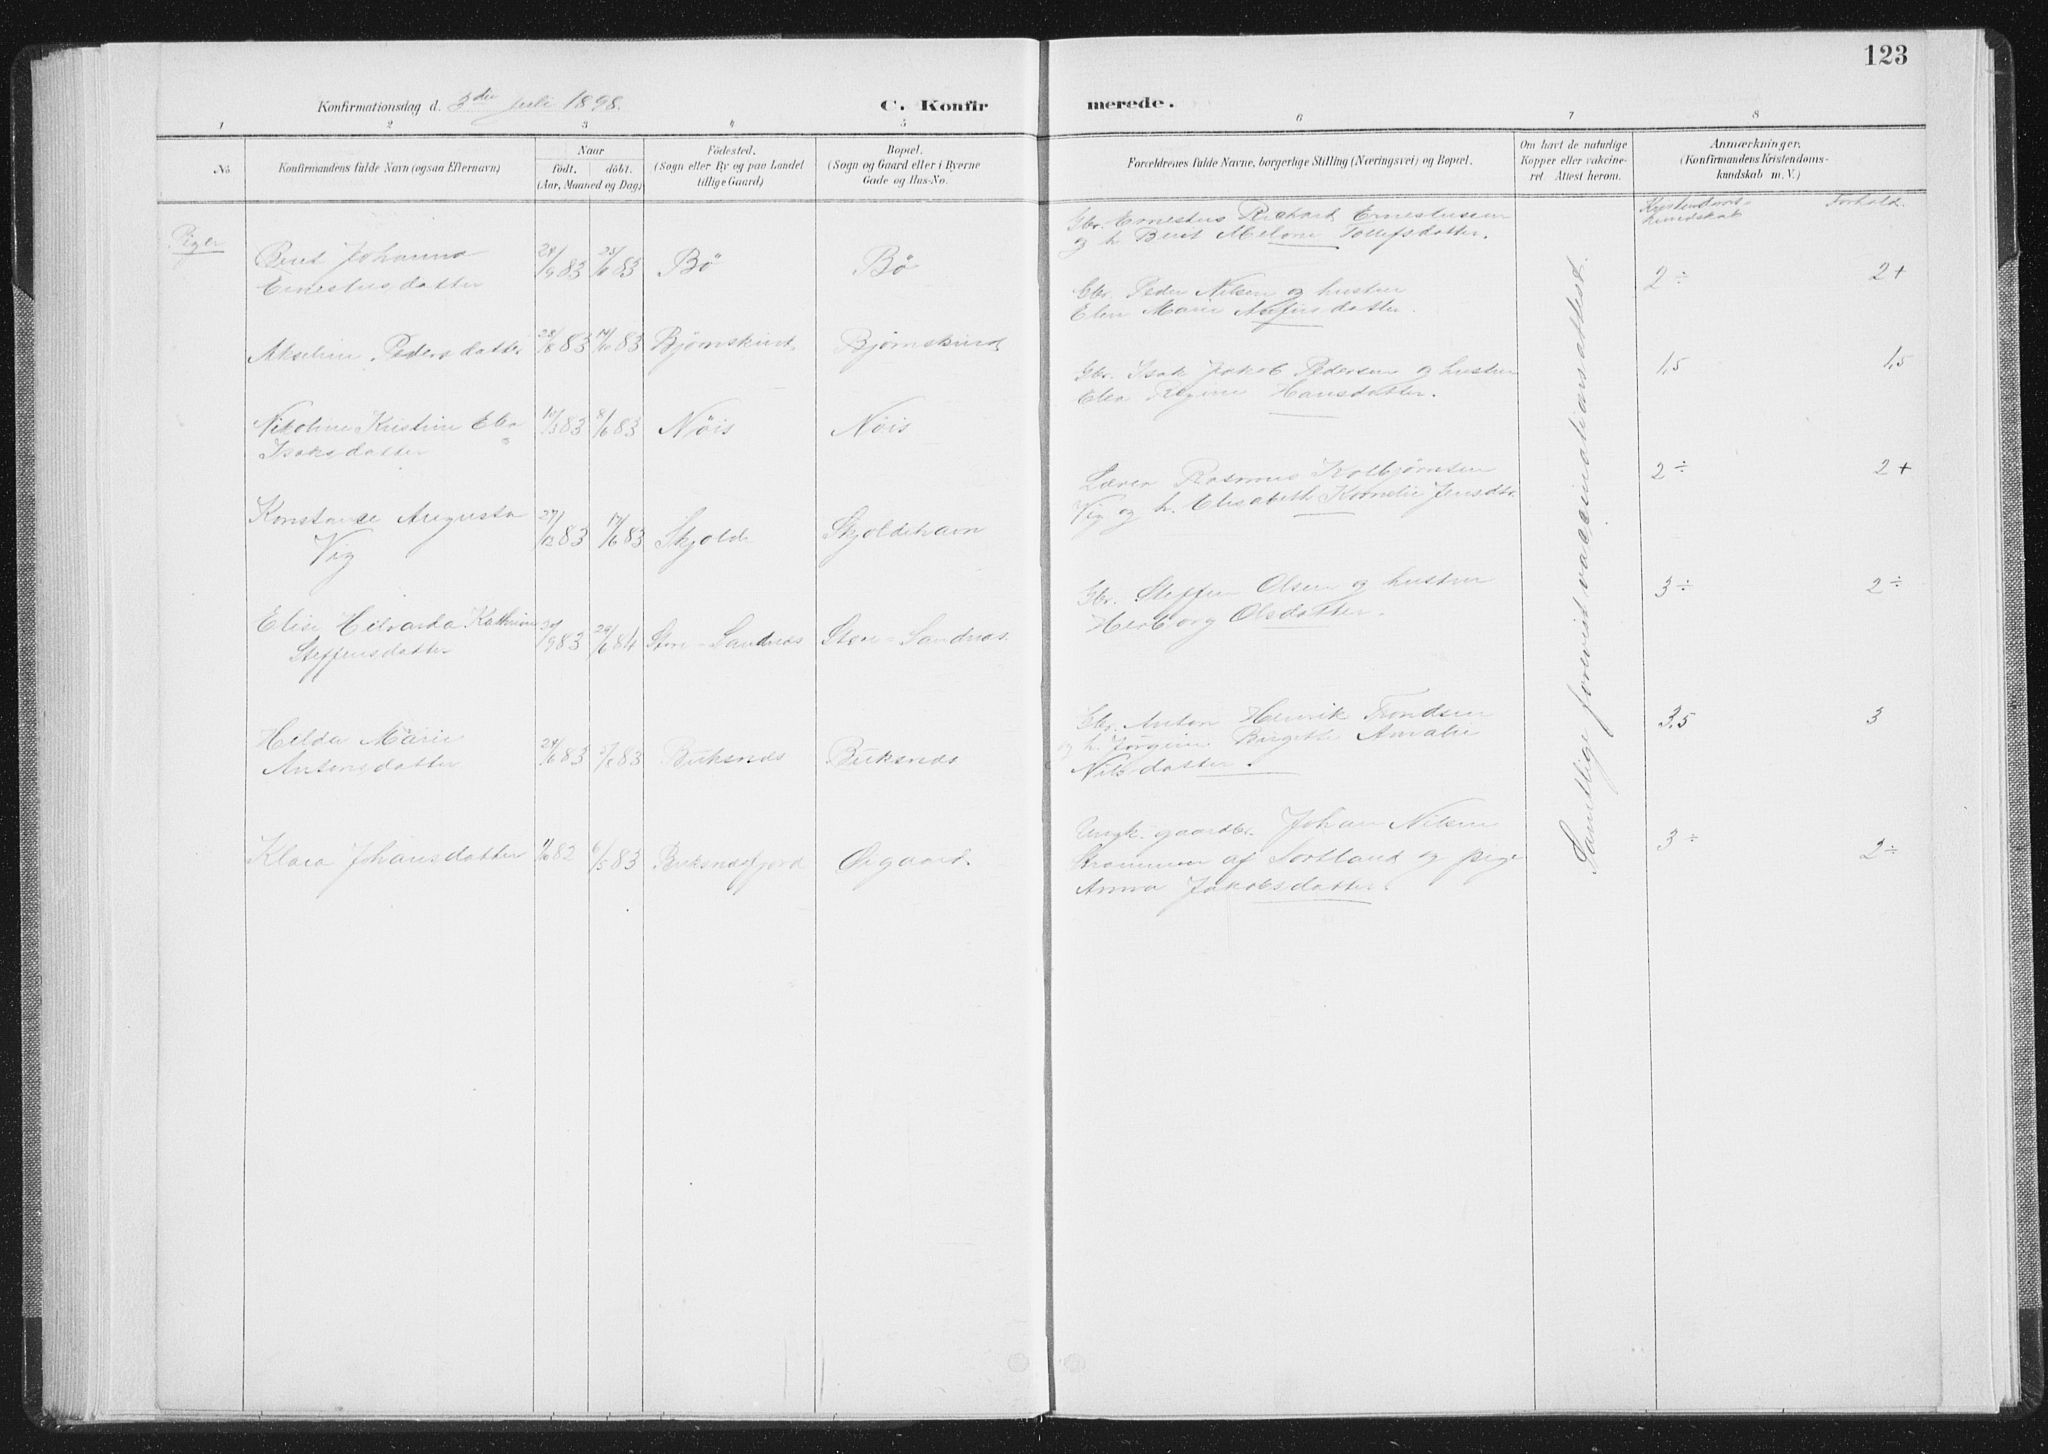 123
Konfirmationsdag d. 3die Juli 1898.
C. Konfirmerede.
1 2 3 4 5 6 7 8
No.
Konfirmandens fulde Navn (ogsaa Efternavn)
Naar
født. døbt.
(Aar, Maaned og Dag)
Fødested.
(Sogn eller By og paa Landet
tillige Gaard)
Bopæl.
(Sogn og Gaard eller i Byerne
Gade og Hus-No.
Forældrenes fulde Navne, borgerlige Stilling (Næringsvei) og Bopæl.
Om havt de naturlige
Kopper eller vakcine-
ret. Attest herom.
Anmærkninger.
(Konfirmandens Kristendoms-
kundskab m. V.)
Kristendoms-
kundskab
Forhold.
Piger
Berit Johanna
Ernestusdatter
28/9 83 25/ 83 Bø Bø
Gbr. Ernestus Richard Ernestussen
og h. Berit Melone Tollefsdatter.
2÷ 2+
Akseline Pedersdatter 28/8 83 14/10 83 Bjørnskind. Bjørnskind
Gbr. Peder Nilsen og hustru
Elen Marie datter.
1,5 1,5
Nikoline Kristine Elea
Isaksdatter
10/3 83 8/6 83 Nøis Nøis
Gbr. Isak Jakob Pedersen og hustru
Elea Regine Hansdatter.
2÷ 2+
Konstanse Augusta
Vig
27/12 83 17/6 83 Skjold Skjoldehavn
Lærer Rasmus Kolbjørnsen
Vig og h. Elisabeth Kornelie Jensdtr.
3÷ 2÷
Elise Hilvarda Kathrine
Steffensdatter
30/9 83 29/6 84 Store-Sandnæs Store-Sandnæs
Gbr. Steffen Olsen og hustru
Herborg Olsdatter.
3,5 3
Helda Marie
Antonsdatter
24/6 83 83 Buksnæs Buksnæs
Gbr. Anton Henrik Trondsen
og h. Jørgine Birgitte Amalie
Nilsdatter.
3÷ 2÷
Klara Johansdatter 82 6/5 83 Buksnæsfjord Ørgaard.
Ungk. gaardbr. Johan Nilsen
Strømmen af Sortland og pige
Anna Jakobsdatter.
Samtlige forevist vaccinationsattest.